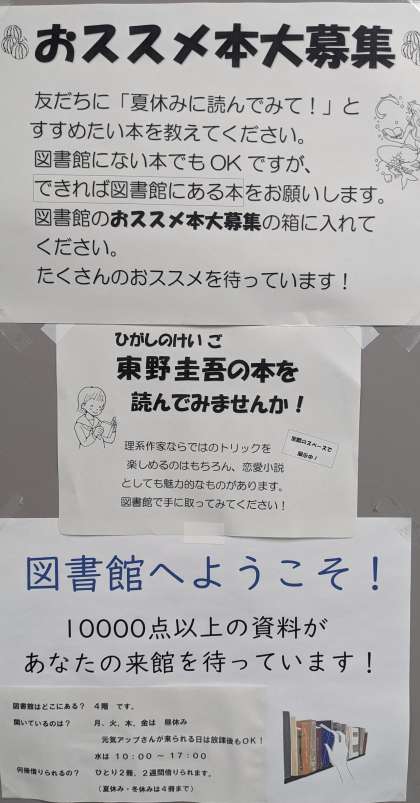 おススメ本大募集
友だちに「夏休みに読んでみて！」と
すすめたい本を教えてください。
図書館にない本でも OK ですが、
できれば図書館にある本をお願いします。
図書館のおススメ本大募集の箱に入れて
ください。
たくさんのおススメを待っています！
ひがしのけいご
東野圭吾の本を
読んでみませんか！
理系作家ならではのトリックを
楽しめるのはもちろん、恋愛小説
としても魅力的なものがあります。
図書館で手に取ってみてください！
のスペースで
展示中！
図書館へようこそ！
10000点以上の資料が
あなたの来館を待っています！
図書館はどこにある？ 4階 です。
開いているのは？ 月、火、木、金は 昼休み
元気アップさんが来られる日は放課後もOK！
水は 10：00 ～ 17：00
何冊借りられるの？ ひとり2冊、2週間借りられます。
（夏休み・冬休みは4冊まで）